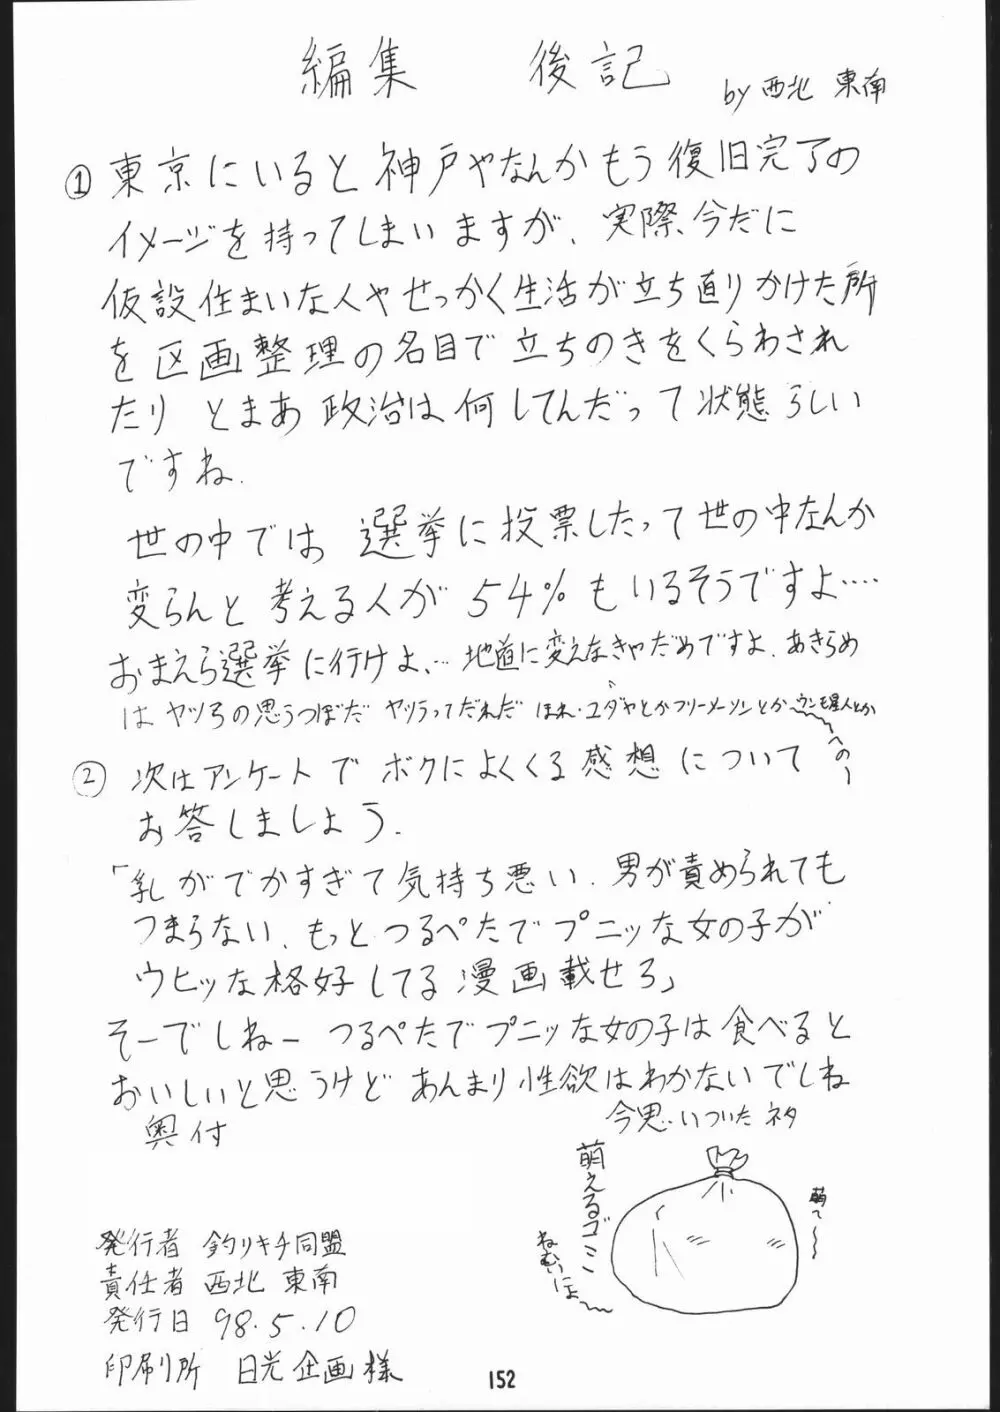 編集　後記
by 西北 東南
① 東京にいると神戸やなんかもう復旧完了の
イメージを持ってしまいますが、実際今だに
仮設住まいな人やせっかく生活が立ち直りかけた所
を区画整理の名目で立ちのきをくらわされ
たり とまあ 政治は何してんだって状態らしい
ですね.
世の中では 選挙に投票したって世の中なんか
変らんと考える人が54%もいるそうですよ‥‥
おまえら選挙に行けよ、… 地道に変えなきゃだめですよ. あきらめ
は ヤツらの思うつぼだ ヤツラってだれだ ほれ・ユダヤとかフリーメーソンとか〜ウンモ星人とか
〜へのー
② 次はアンケートでボクによくくる感想について
お答しましょう.
「乳がでかすぎて気持ち悪い. 男が責められても
つまらない、もっとつるぺたでプニッな女の子が
ウヒッな格好してる漫画載せろ」
そーでしねー つるぺたでプニッな女の子は食べると
おいしいと思うけど あんまり性欲はわかないでしね
今思いついたネタ
萌えるゴミ
萌て〜〜
ねむいにょ〜
奥付
発行者 釣りキチ同盟
責任者 西北 東南
発行日 98.5.10
印刷所 日光企画様
152